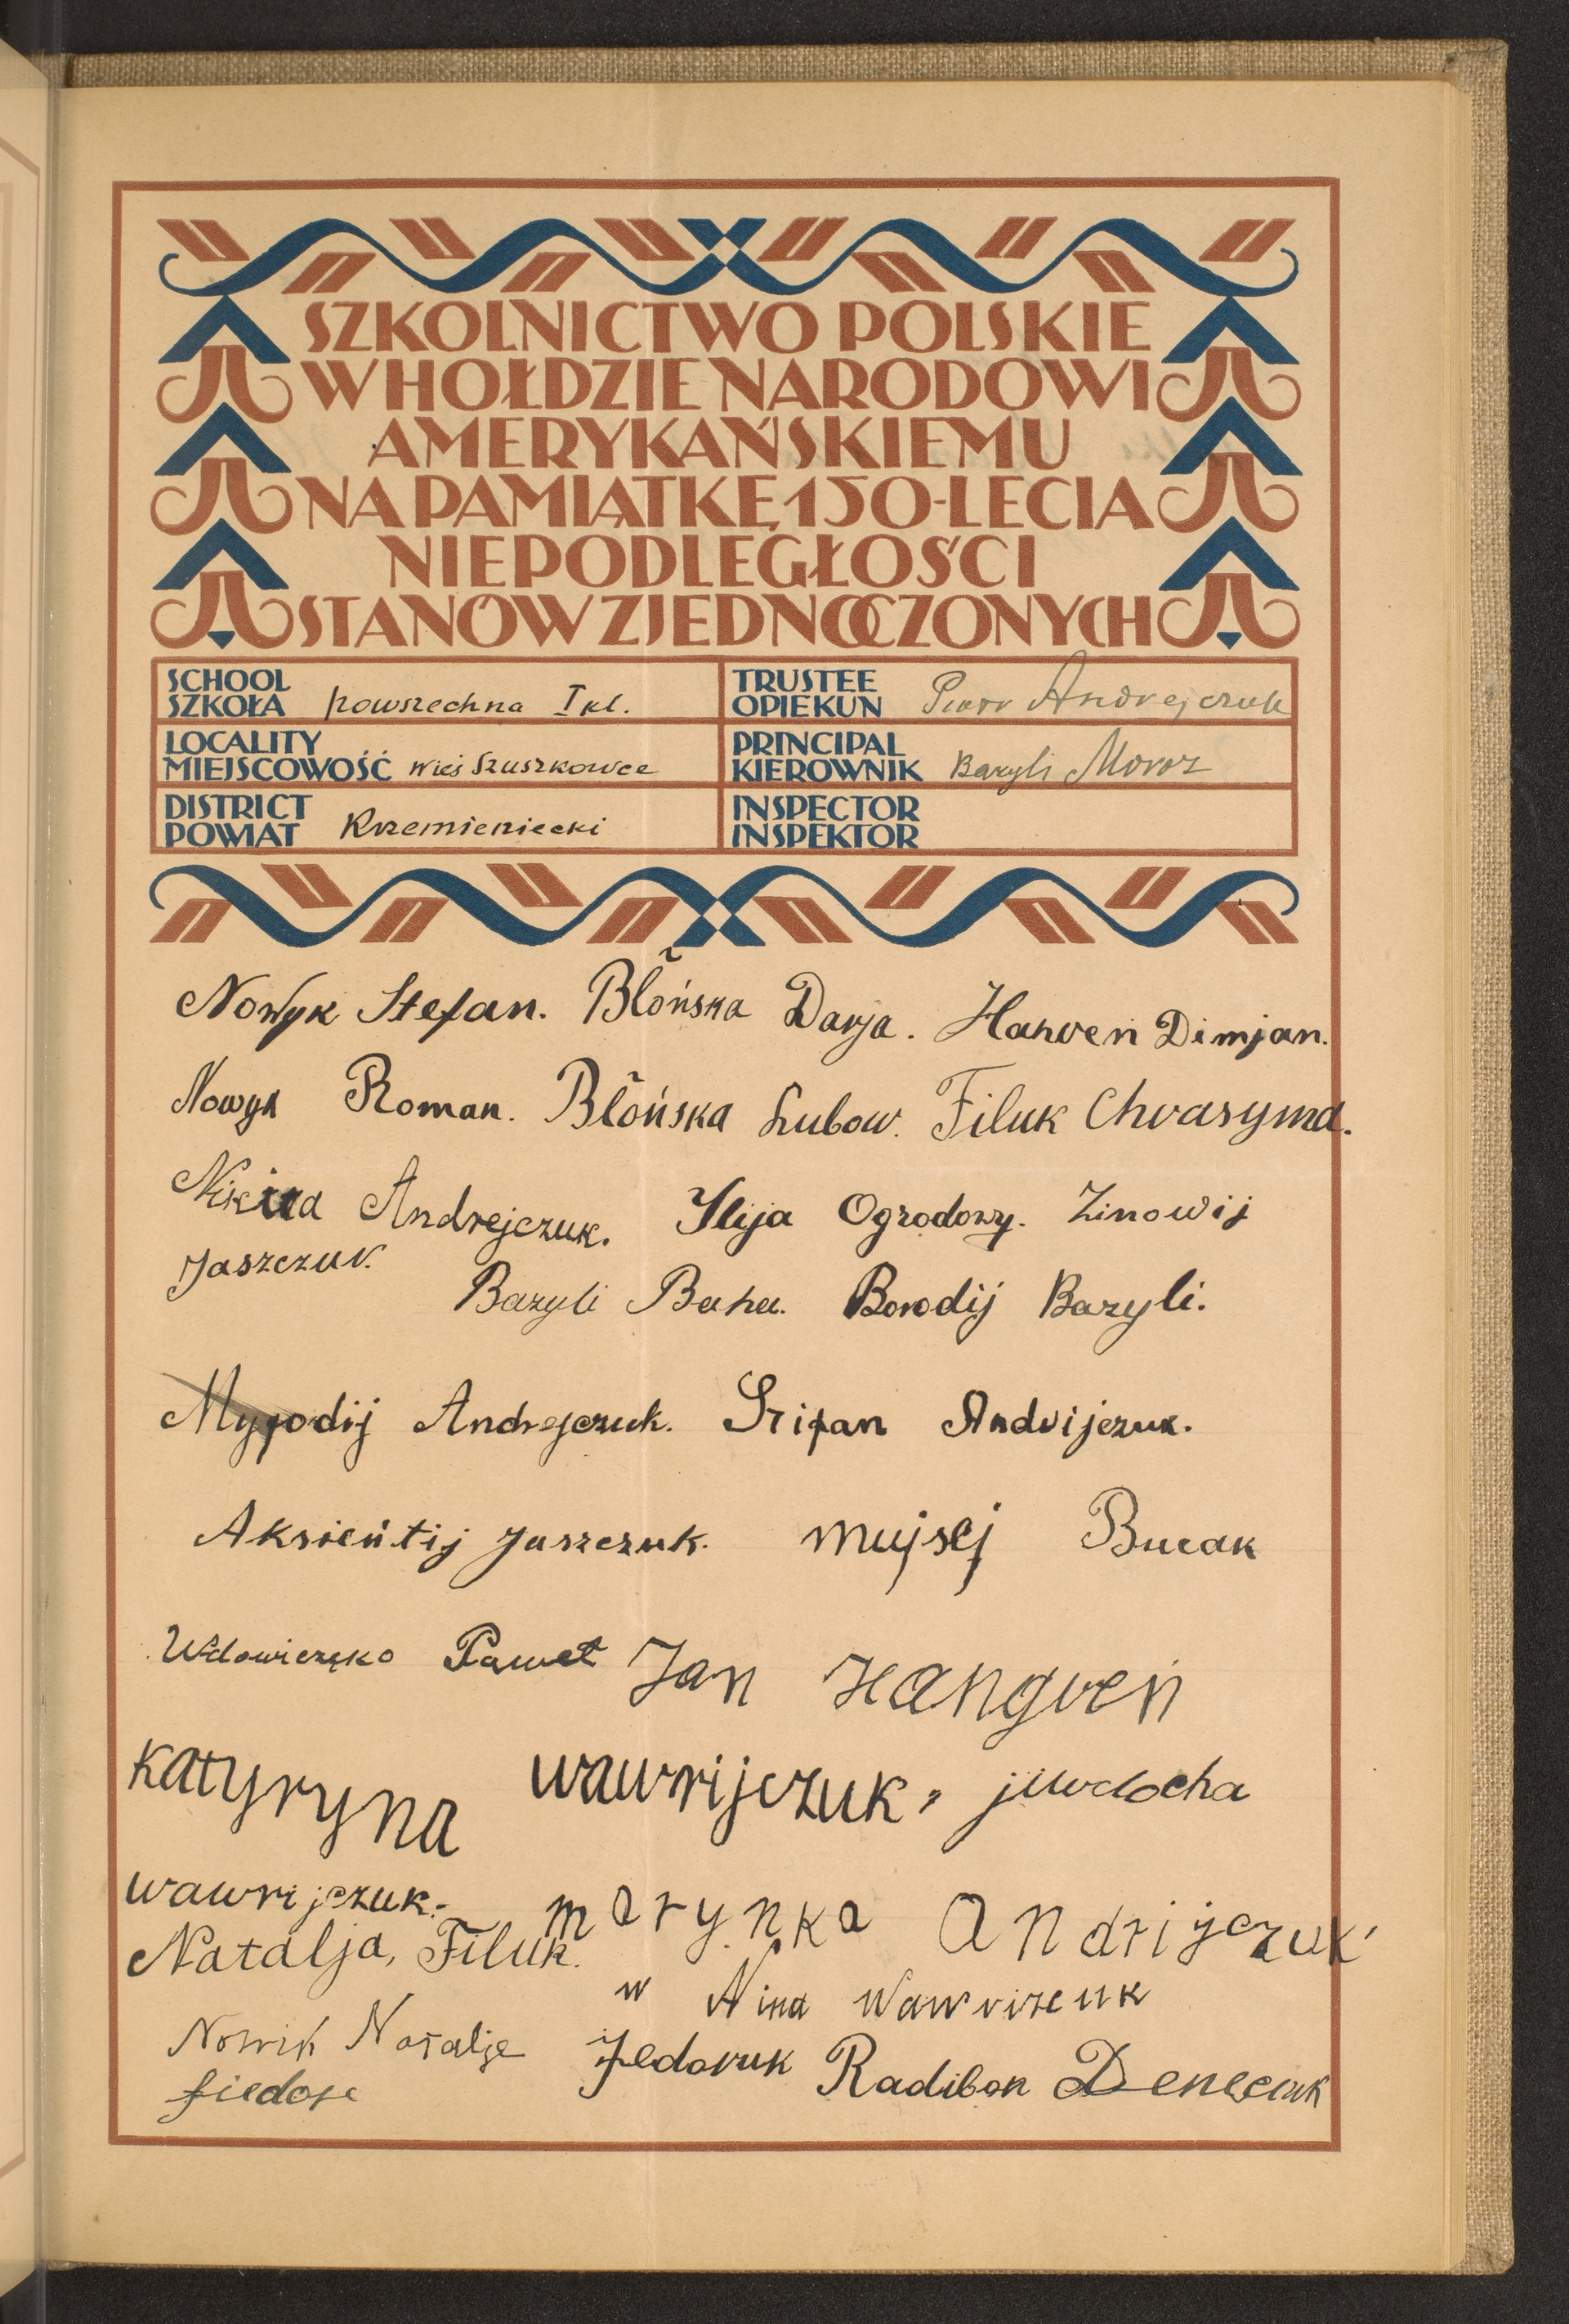 SZKOLNICTWO POLSKIE
W HOŁDZIE NARODOWI
AMERYKAŃSKIEMU
NA PAMIĄTKĘ 150-LECIA
NIEPODLEGŁOŚCI
STANÓW ZJEDNOCZONYCH
SCHOOL
SZKOŁA powszechna I kl.
TRUSTEE
OPIEKUN Piotr Andrejczuk
LOCALITY
MIEJSCOWOŚĆ wieś Szuszkowce
PRINCIPAL
KIEROWNIK Bazyli Moroz
DISTRICT
POWIAT Krzemieniecki
INSPECTOR
INSPEKTOR
Nowyk Stefan. Błońska Darja. Hanven Dimjan.
Nowyk Roman. Błońska Lubow. Filuk Chvasyma.
Nikita Andrejczuk. Ilija Ogrodowy. Zinowij
Jaszczuk. Bazyli Baha. Borodij Bazyli.
Andrejczuk. Stipan Andrijczuk.
Aksieńtij Jaszczuk. mujsej Bucak
Wdowiczęko Paweł Jan Hangven
katyryna wawrijczuk, juwdocha
wawrijczuk.
marynka Andrijczuk
Natalja, Filuk.
w Nina Wawriszuk
Nowik Natalje Fedoruk Radibon